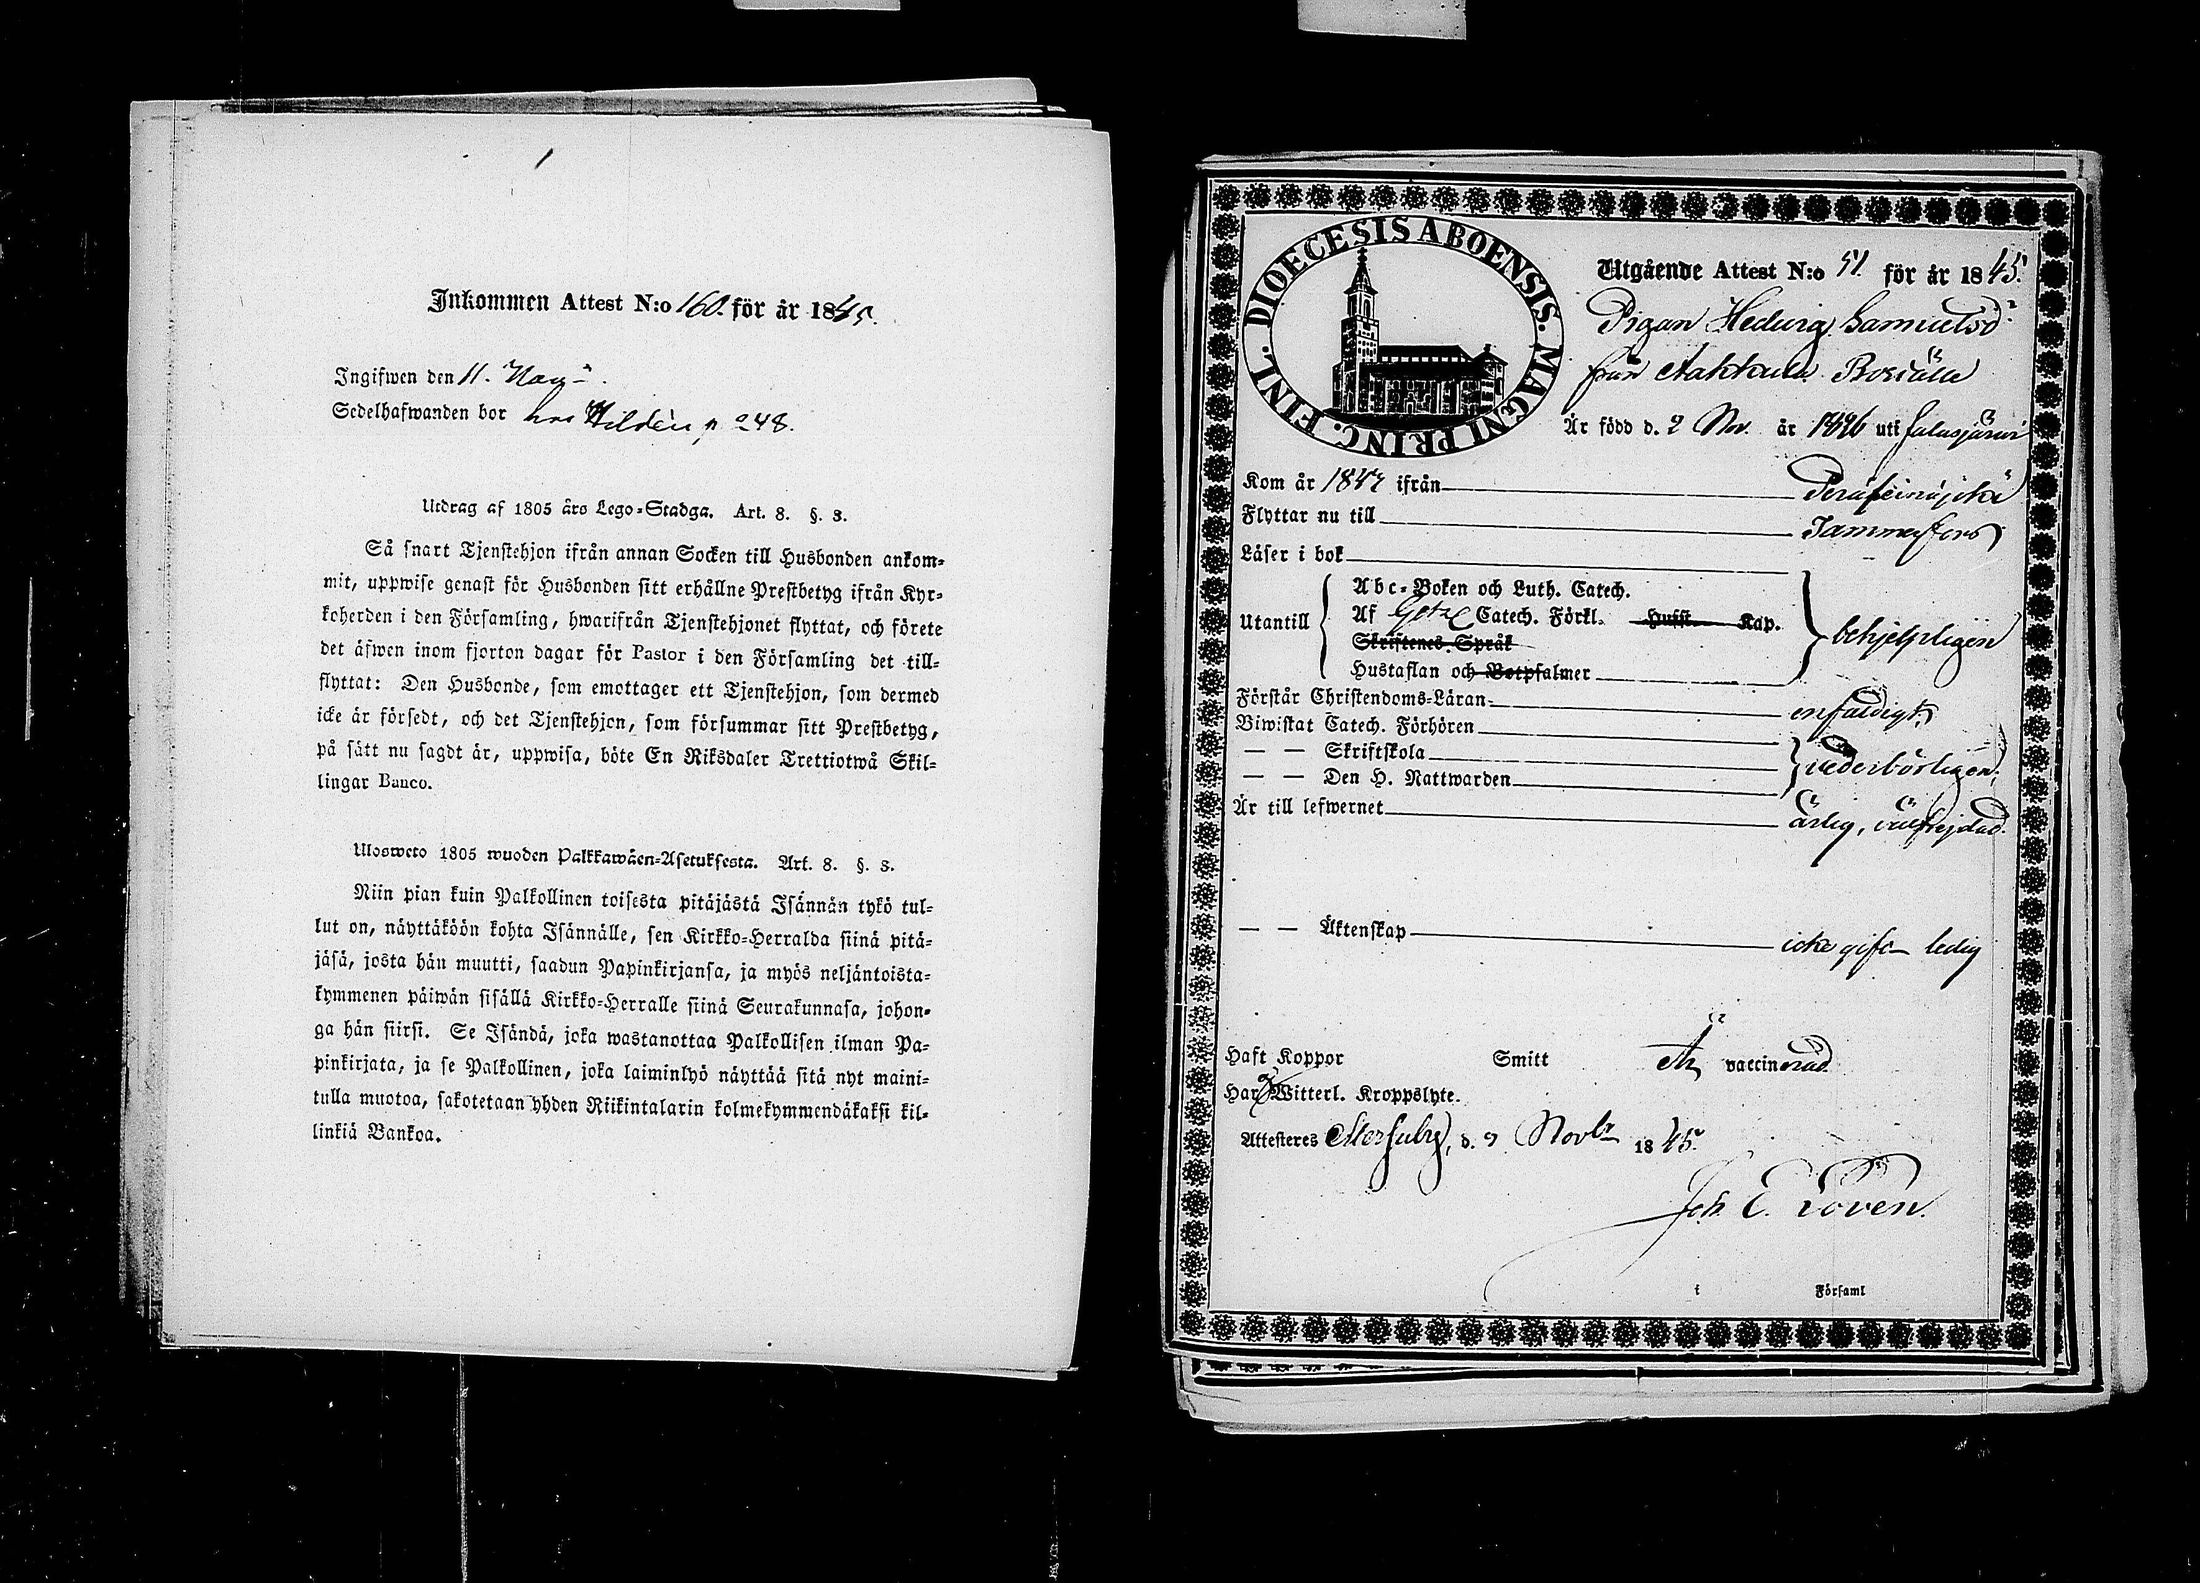 Inkommen Attest N:o 160. för år 1845.
Ingifwen den 11. Nov.
Sedelhafwanden bor hos Hildén p 248.
Utdrag af 1805 års Lego-Stadga. Art. 8. §. 3.
Så snart Tjenstehjon ifrån annan Socken till Husbonden ankom-
mit, uppwise genast för Husbonden sitt erhållne Prestbetyg ifrån Kyr-
koherden i den Församling, hwarifrån Tjenstehjonet flyttat, och förete
det äfwen inom fjorton dagar för Pastor i den Församling det till-
flyttat: Den Husbonde, som emottager ett Tjenstehjon, som dermed
icke är försedt, och det Tjenstehjon, som försummar sitt Prestbetyg,
på sätt nu sagdt är, uppwisa, böte En Riksdaler Trettiotwå Skil-
lingar Banco.
Ulosweto 1805 wuoden Palkkawäen-Asetuksesta. Art. 8. §. 3.
Niin pian kuin Palkollinen toisesta pitäjästä Isännän tykö tul-
lut on, näyttäköön kohta Isännälle, sen Kirkko-Herralda siinä pitä-
jäsä, josta hän muutti, saadun Papinkirjansa, ja myös neljäntoista-
kymmenen päiwän sisällä Kirkko-Herralle siinä Seurakunnasa, johon-
ga hän siirsi. Se Isändä, joka wastanottaa Palkollisen ilman Pa-
pinkirjata, ja se Palkollinen, joka laiminlyö näyttää sitä nyt maini-
tulla muotoa, sakotetaan yhden Riikintalarin kolmekymmendäkaksi kil-
linkiä Bankoa.
DIOECESIS ABOENSIS. MAGNI PRINC. FINL.
Utgående Attest N:o 51 för år 1845.
Pigan Hedvig Samuelsd:r
från Aakkula Boställe
Är född d. 2 Nov. år 1826 uti Jalasjärvi
Kom år 1844 ifrån Peräseinäjoki
Flyttar nu till Tammerfors
Läser i bok
Utantill
Abc-Boken och Luth. Catech.
Af Götze Catech. Förkl. Hufst. Kap.
Skriftenes Språk
Hustaflan och Botpsalmer
behjelpligen
Förstår Christendoms-Läran enfaldigt,
Biwistat Catech. Förhören
— — Skriftskola
— — Den H. Nattwarden
vederbörligen;
Är till lefwernet ärlig, välfrejdad.
— — Äktenskap icke gift ledig
Haft Koppor Smitt Är vaccinerad
Har Witterl. Kroppslyte.
Attesteres Mersuby, d. 9 Novbr 1845.
Joh. E. Roven.
i Församl